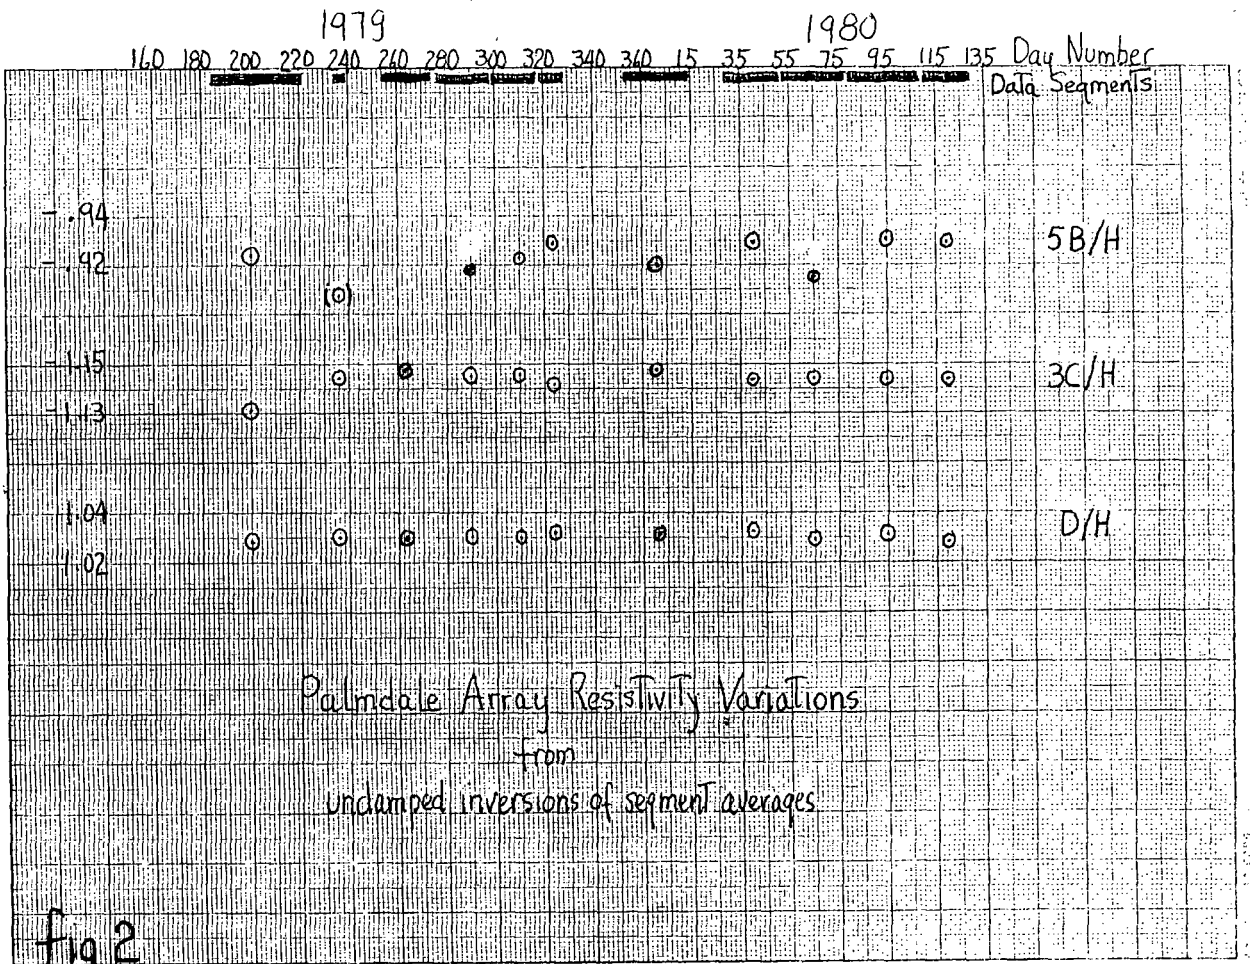 1979 1980
160 180 200 220 240 260 280 300 320 340 360 15 35 55 75 95 115 135 Day Number
Data Segments
.94
5B/H
.92
1.15
3C/H
1.13
1.04
D/H
1.02
Palmdale Array Resistivity Variations
from
undamped inversions of segment averages
fig 2